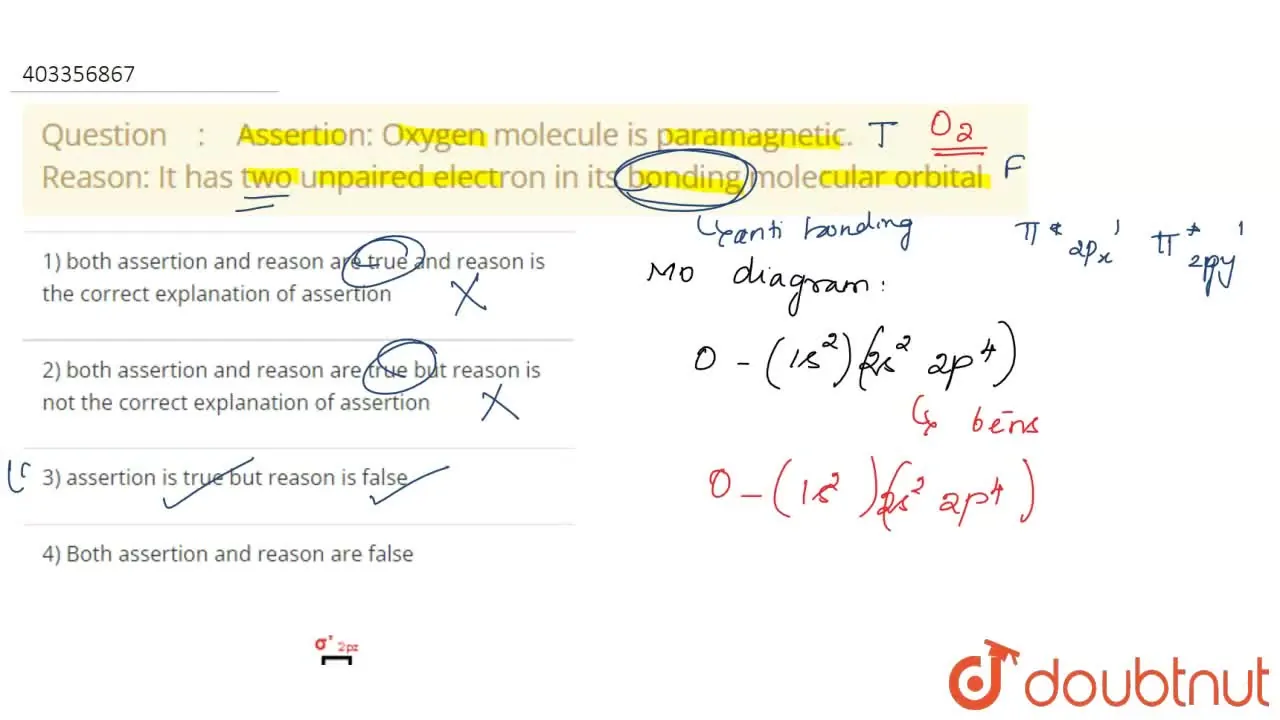 403356867
Question : Assertion: Oxygen molecule is paramagnetic. T O2
Reason: It has two unpaired electron in its bonding molecular orbital F
↳ anti bonding π* 2px¹ π* 2py¹
1) both assertion and reason are true and reason is
the correct explanation of assertion X
MO diagram:
O - (1s²)(2s² 2p⁴)
2) both assertion and reason are true but reason is
not the correct explanation of assertion X
↳ 6 ēns
3) assertion is true but reason is false
O - (1s²)(2s² 2p⁴)
4) Both assertion and reason are false
σ* 2pz
doubtnut